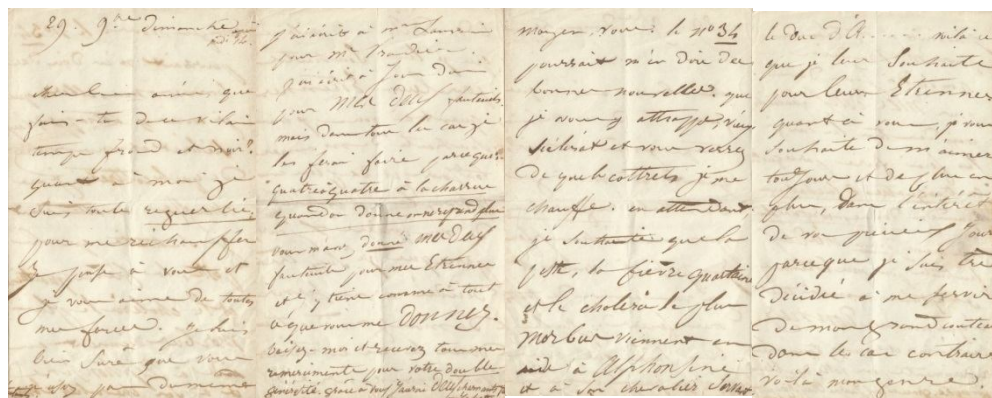 29. 9bre dimanche
mon bien aimé, que
fais-tu de ce vilain
temps froid et noir?
quant à moi je
suis toute
pour me réchauffer
je pense à vous et
je vous aime de toutes
mes forces. je suis
bien sûre que vous
pas du même
j'ai écrit à Mr
pour Mr
j'ai écrit à
pour mes deux fauteuils
mais dans tous les cas je
les ferai faire parce que
quatre à quatre à la charrue
quand on donne on ne reprend plus
vous m'avez donné mes deux
fauteuils pour mes Etrennes
et j'y tiens comme à tout
ce que vous me donnez.
baisez-moi et recevez tous mes
remerciments pour votre double
générosité, grâce à
moyen, vous: le no 34
pourrait m'en dire de
bonnes nouvelles. que
je vous y attrappe, vieux
scélérat et vous verrez
de quels cottrets je me
chauffe. en attendant
je souhaite que la
peste, la fièvre quartaine
et le choléra le plus
morbus viennent en
aide à Alphonsine
et à son chevalier
le duc d'A...... voilà ce
que je leur souhaite
pour leurs Etrennes
quant à vous, je vous
souhaite de m'aimer
toujours et de plus en
plus, dans l'intérêt
de vos précieux jours
parce que je suis très
décidée à me servir
de mon grand couteau
dans le cas contraire
voilà mon genre.